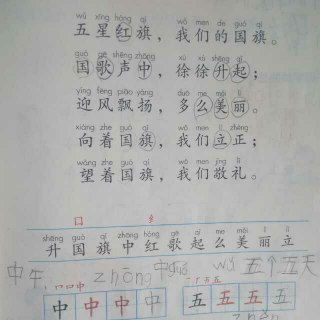 wǔ xīng hóng qí wǒ men de guó qí
五星红旗，我们的国旗。
guó gē shēng zhōng xú xú shēng qǐ
国歌声中，徐徐升起；
yíng fēng piāo yáng duō me měi lì
迎风飘扬，多么美丽。
xiàng zhe guó qí wǒ men lì zhèng
向着国旗，我们立正；
wàng zhe guó qí wǒ men jìng lǐ
望着国旗，我们敬礼。
口 纟
shēng guó qí zhōng hóng gē qǐ me měi lì lì
升国旗中红歌起么美丽立
中午 zhōng 中国 wǔ 五个五天
中中中中 五五五五